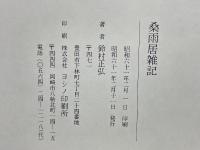 桑雨居雑記
昭和六十一年二月一日 印刷
昭和六十一年二月十一日 発行
著者 鈴村正弘
〒四七一
豊田市下林町七丁目二十四番地
印刷 株式会社 ヨシノ印刷所
〒四四四 岡崎市八帖北町四－一五
電話（〇五六四）二四－一二八代